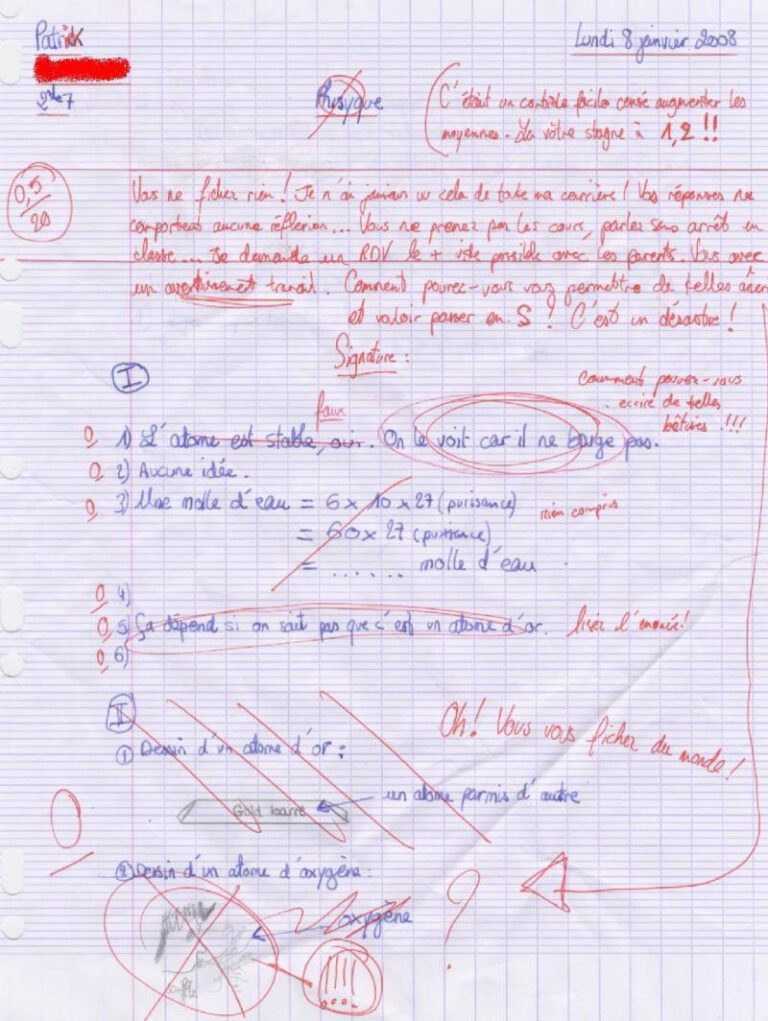 Patrick
Lundi 8 janvier 2008
2nde 7
Physyque
C'était un contrôle facile censé augmenter les
moyennes. La vôtre stagne à 1,2 !!
0,5
20
Vous ne ficher rien ! Je n'ai jamais vu cela de toute ma carrière ! Vos réponses ne
comportent aucune réflexion... Vous ne prenez pas les cours, parlez sans arrêt en
classe... Je demande un RDV le + vite possible avec les parents. Vous avez
un avertissement travail. Comment pouvez-vous vous permettre de telles âner
et vouloir passer en S ? C'est un désastre !
Signature :
I
comment pouvez-vous
écrire de telles
bêtises !!!
faux
0 1) L'atome est stable, oui. On le voit car il ne bouge pas.
0 2) Aucune idée.
0 3) Une molle d'eau = 6 x 10 x 27 (puissance) rien compris
= 60 x 27 (puissance)
= ...... molle d'eau
0 4)
0 5) ça dépend si on sait pas que c'est un atome d'or. lisez l'énoncé!
0 6)
I
Oh! Vous vous ficher du monde !
① Dessin d'un atome d'or :
Gold barre un atome parmis d'autre
0
② Dessin d'un atome d'oxygène :
oxygène ?
souffle
!!!!